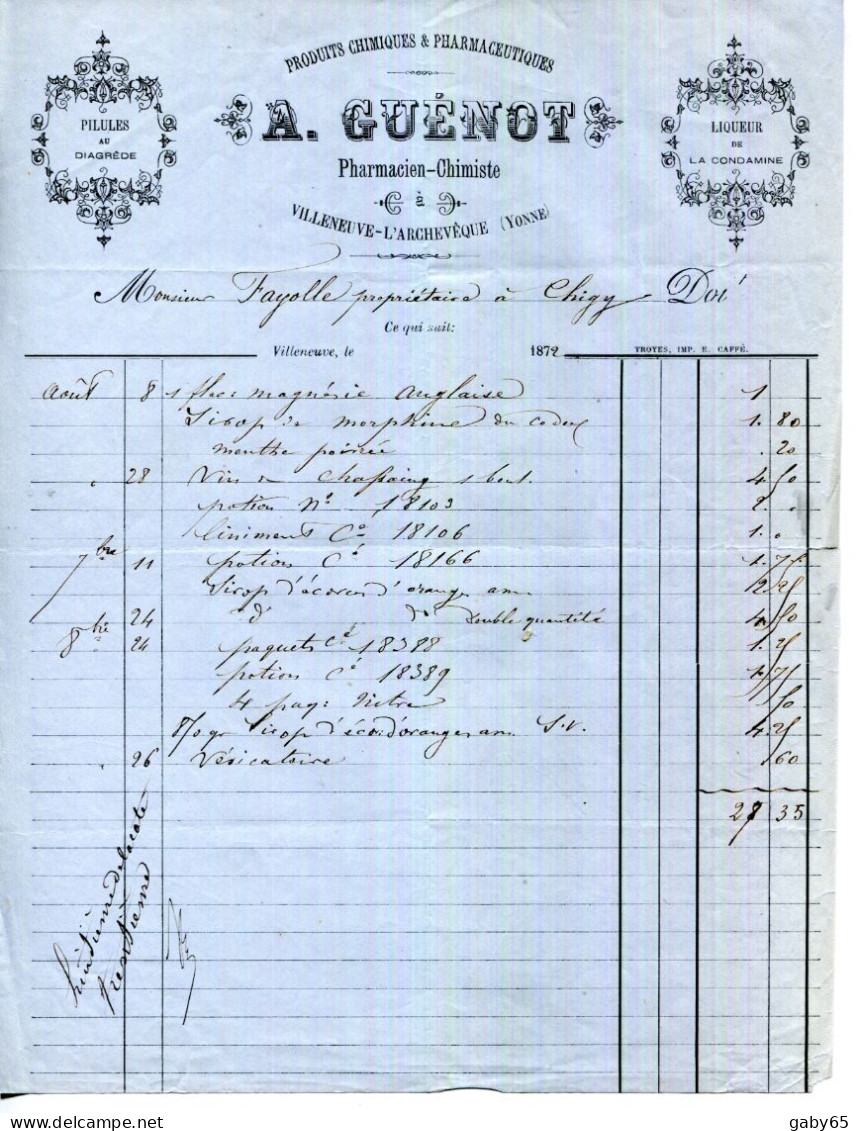 PRODUITS CHIMIQUES & PHARMACEUTIQUES
PILULES
AU
DIAGRÈDE
A. GUÉNOT
LIQUEUR
DE
LA CONDAMINE
Pharmacien-Chimiste
à
VILLENEUVE-L'ARCHEVÊQUE (YONNE)
Monsieur Fayolle propriétaire à Chigy Doit
Ce qui suit:
Villeneuve, le 1872 TROYES, IMP. E. CAFFÉ.
août 8 1 flac: magnésie anglaise 1
Sirop de morphine du codex 1. 80
menthe poivrée . 20
" 28 Vin de Chassaing 1 bout. 4. 50
potion No 18103 2. "
liniment Co 18106 1. "
7bre 11 potion Cé 18166 1. 75
Sirop d'écorces d'oranges am. 2. 25
24 do do Double quantité 4. 50
8bre 24 paquets Cé 18388 1. 25
potion Cé 18389 1. 75
4 paq: Nitre . 50
Sirop d'éco: d'oranges am. S.V. 4. 25
" 26 Vésicatoire . 60
35
gaby65